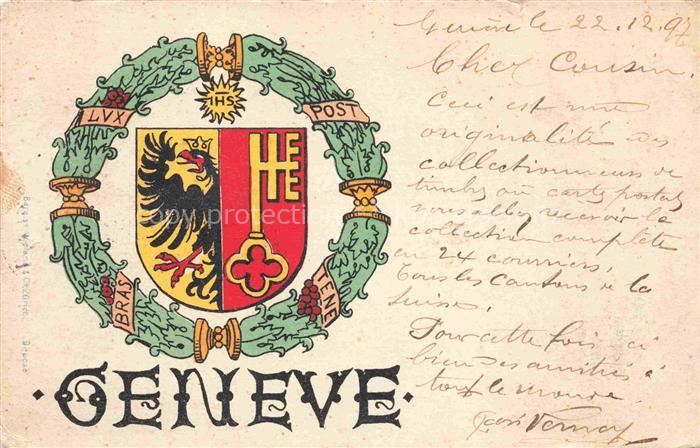 Genève le 22.12.97
Cher Cousin,
Ceci est une
originalité des
collectionneurs de
timbres ou cartes postales
vous allez recevoir la
collection complète
en 24 courriers,
tous les cantons de la
Suisse,
Pour cette fois ci
bien des amitiés à
tout le monde.
Vernay
IHS
LVX
POST
BRAS
TENE
·GENEVE·
copy protection